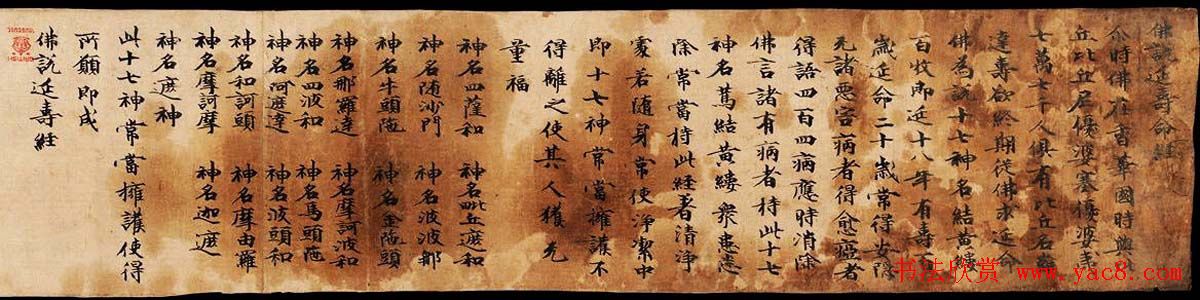 佛說延壽命經
尒時佛在香華國時與
丘比丘尼優婆塞優婆夷
七萬七千人俱有比丘名
達壽欲終期從佛求延命
佛為說十七神名結黃縷
百牧即延十八年有壽
歲延命二十歲常得安隱
无諸惡害病者得愈瘂者
得語四百四病應時消除
佛言諸有病者持此十七
神名為結黃縷眾患悉
除常當持此經著清淨
處若隨身常使淨潔中
即十七神常當擁護不
得離之使其人獲无
量福
神名四薩和 神名毗丘遮和
神名隨沙門 神名波波那
神名牛頭陁 神名金陁頭
神名那羅達 神名摩訶波和
神名四波和 神名馬頭陁
神名阿遮達 神名波頭和
神名和訶頭 神名摩由羅
神名摩訶摩 神名迦遮
神名遮神
此十七神常當擁護使得
所願即成
佛說延壽經
书法欣赏 www.yac8.com